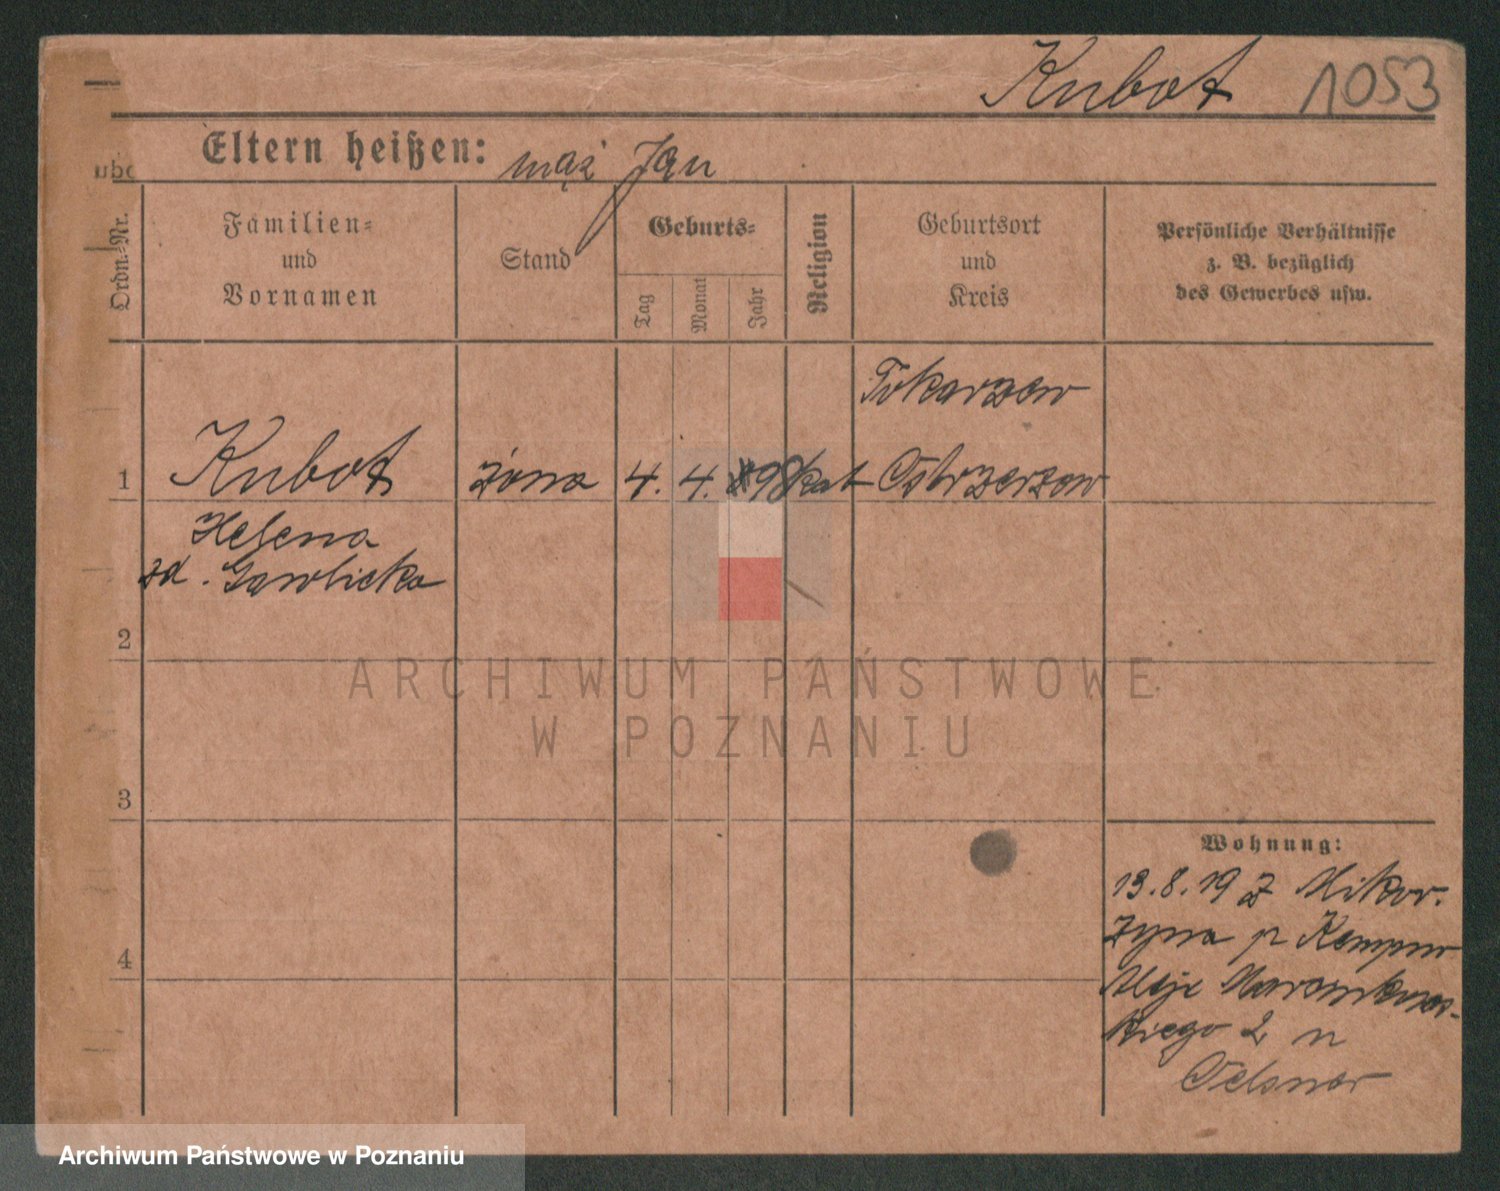 Kubot 1053
Eltern heißen: mąż Jan
Ordn.-Nr.
Familien-
und
Vornamen
Stand
Geburts-
Tag
Monat
Jahr
Religion
Geburtsort
und
Kreis
Persönliche Verhältnisse
z. B. bezüglich
des Gewerbes usw.
Tokarzew
1 Kubot żona 4. 4. 98 kat Ostrzeszow
Helena
zd. Gawlicka
2
3
4
Wohnung:
13.8.19 z Mikor.
zyna p Kempno
Aleje Marcinkow-
skiego 2 n
Oelsner
ARCHIWUM PAŃSTWOWE
W POZNANIU
Archiwum Państwowe w Poznaniu